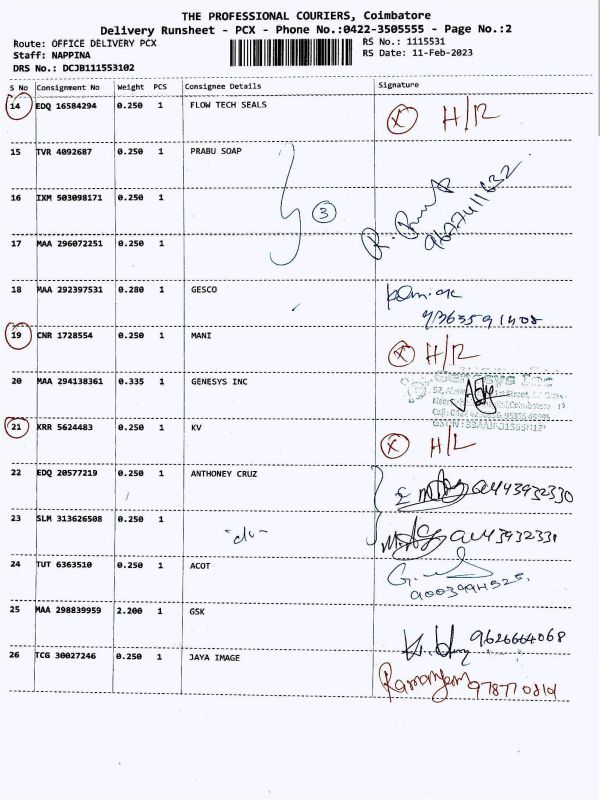 THE PROFESSIONAL COURIERS, Coimbatore
Delivery Runsheet - PCX - Phone No.:0422-3505555 - Page No.:2
Route: OFFICE DELIVERY PCX RS No.: 1115531
Staff: NAPPINA RS Date: 11-Feb-2023
DRS No.: DCJB111553102
S No Consignment No Weight PCS Consignee Details Signature
14 EDQ 16584294 0.250 1 FLOW TECH SEALS X H/R
15 TVR 4092687 0.250 1 PRABU SOAP
16 IXM 503098171 0.250 1
3
17 MAA 296072251 0.250 1
18 MAA 292397531 0.280 1 GESCO
19 CNR 1728554 0.250 1 MANI X H/R
20 MAA 294138361 0.335 1 GENESYS INC
Genesys Inc
21 KRR 5624483 0.250 1 KV X H/L
22 EDQ 20577219 0.250 1 ANTHONEY CRUZ
23 SLM 313626508 0.250 1 -do-
24 TUT 6363510 0.250 1 ACOT
25 MAA 298839959 2.200 1 GSK 9626664068
26 TCG 30027246 0.250 1 JAYA IMAGE